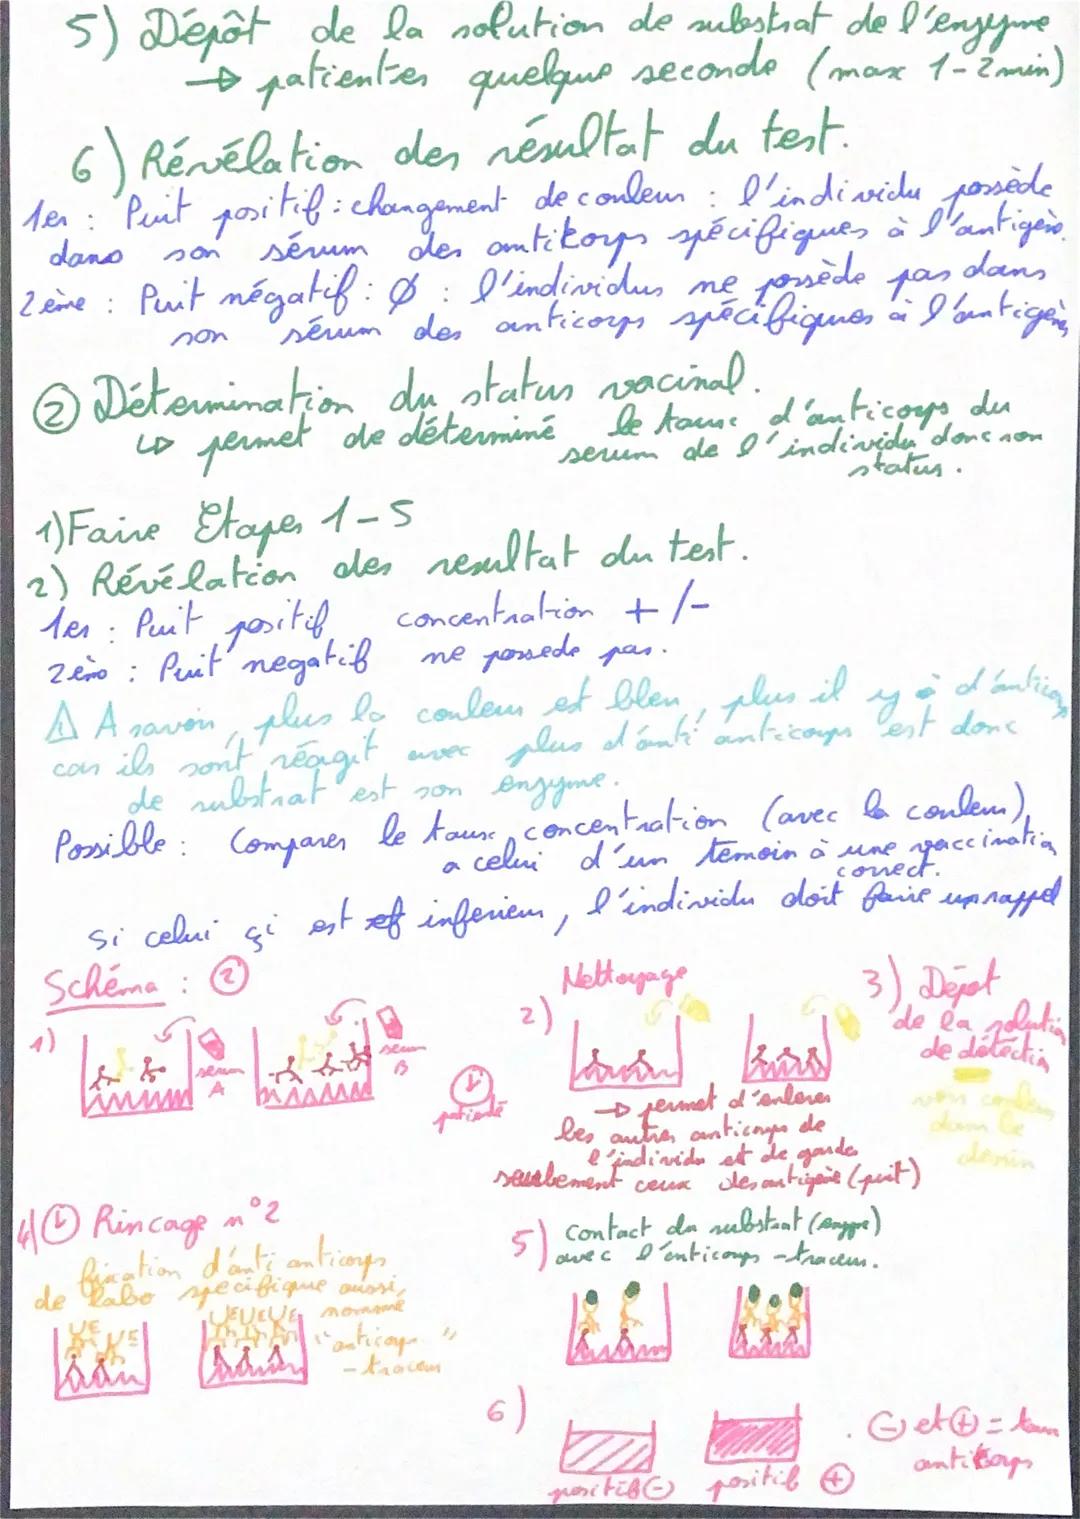 5) Dépôt de la solution de substrat de l'enzyme
→ patienter quelque seconde (max 1-2min)
6) Révélation des résultat du test.
1er : Puit positif : changement de couleur : l'individu possède
dans son sérum des antikorps spécifiques à l'antigène.
2ème : Puit négatif : Ø : l'individus ne possède pas dans
son sérum des anticorps spécifiques à l'antigène
② Détermination du status vacinal.
↳ permet de déterminé le taux d'anticorps du
serum de l'individu donc son
status.
1) Faire Etapes 1-5
2) Révélation des resultat du test.
1er : Puit positif concentration +/-
2ème : Puit negatif ne possede pas.
⚠ A savoir, plus la couleur est bleu, plus il y a d'antico
car ils sont réagit avec plus d'anti anticorps est donc
de substrat est son enzyme.
Possible : Comparer le taux, concentration (avec la couleur),
a celui d'un temoin à une vaccination
correct.
si celui çi est inferieur, l'individu doit faire un rappel
Schéma : ②
1)
serum
A
serum
B
patienté
Nettoyage
2)
→ permet d'enlever
les autres anticorps de
l'individu et de garder
seulement ceux des antigène (puit)
3) Dépot
de la solution
de détection
voir couleur
dans le
dessin
4) Rincage n°2
fixation d'anti anticorps
de labo spécifique aussi,
nommé
"anticorps"
-traceur
5) contact du substrat (enzyme)
avec l'anticorps -traceur.
6)
positif ⊖
positif ⊕
. ⊖ et ⊕ = taux
antikorps